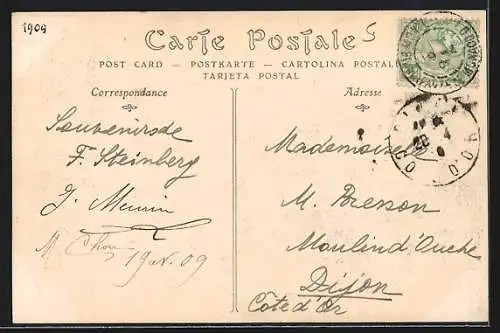 1909
Carte Postale
5
POST CARD — POSTKARTE — CARTOLINA POSTALE
TARJETA POSTAL
Correspondance
Adresse
Souvenir de
F. Steinberg
19 av. 09
Mademoiselle
M. Bresson
Moulin d'Ouche
Dijon
Côte d'Or